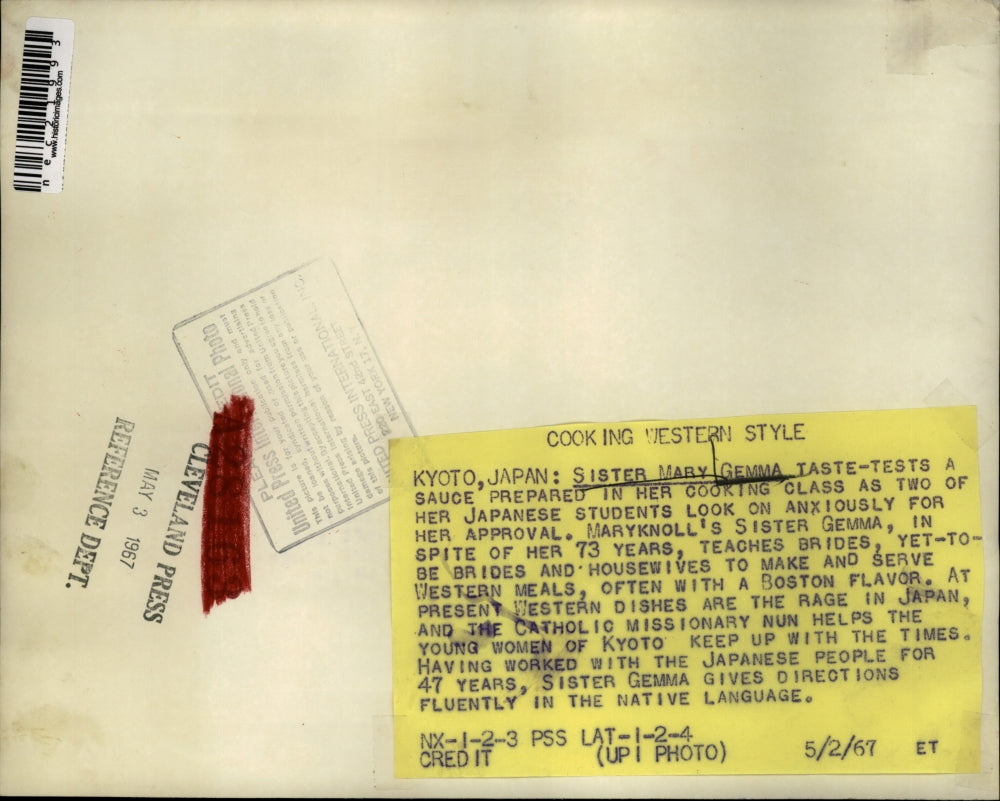 nec21993
www.historicimages.com
United Press International Photo
UNITED PRESS INTERNATIONAL, INC.
220 EAST 42nd STREET
NEW YORK 17, N. Y.
CLEVELAND PRESS
MAY 3 1967
REFERENCE DEPT.
COOKING WESTERN STYLE
KYOTO, JAPAN: SISTER MARY GEMMA TASTE-TESTS A
SAUCE PREPARED IN HER COOKING CLASS AS TWO OF
HER JAPANESE STUDENTS LOOK ON ANXIOUSLY FOR
HER APPROVAL. MARYKNOLL'S SISTER GEMMA, IN
SPITE OF HER 73 YEARS, TEACHES BRIDES, YET-TO-
BE BRIDES AND HOUSEWIVES TO MAKE AND SERVE
WESTERN MEALS, OFTEN WITH A BOSTON FLAVOR. AT
PRESENT WESTERN DISHES ARE THE RAGE IN JAPAN,
AND THE CATHOLIC MISSIONARY NUN HELPS THE
YOUNG WOMEN OF KYOTO KEEP UP WITH THE TIMES.
HAVING WORKED WITH THE JAPANESE PEOPLE FOR
47 YEARS, SISTER GEMMA GIVES DIRECTIONS
FLUENTLY IN THE NATIVE LANGUAGE.
NX-1-2-3 PSS LAT-1-2-4
CREDIT (UPI PHOTO) 5/2/67 ET